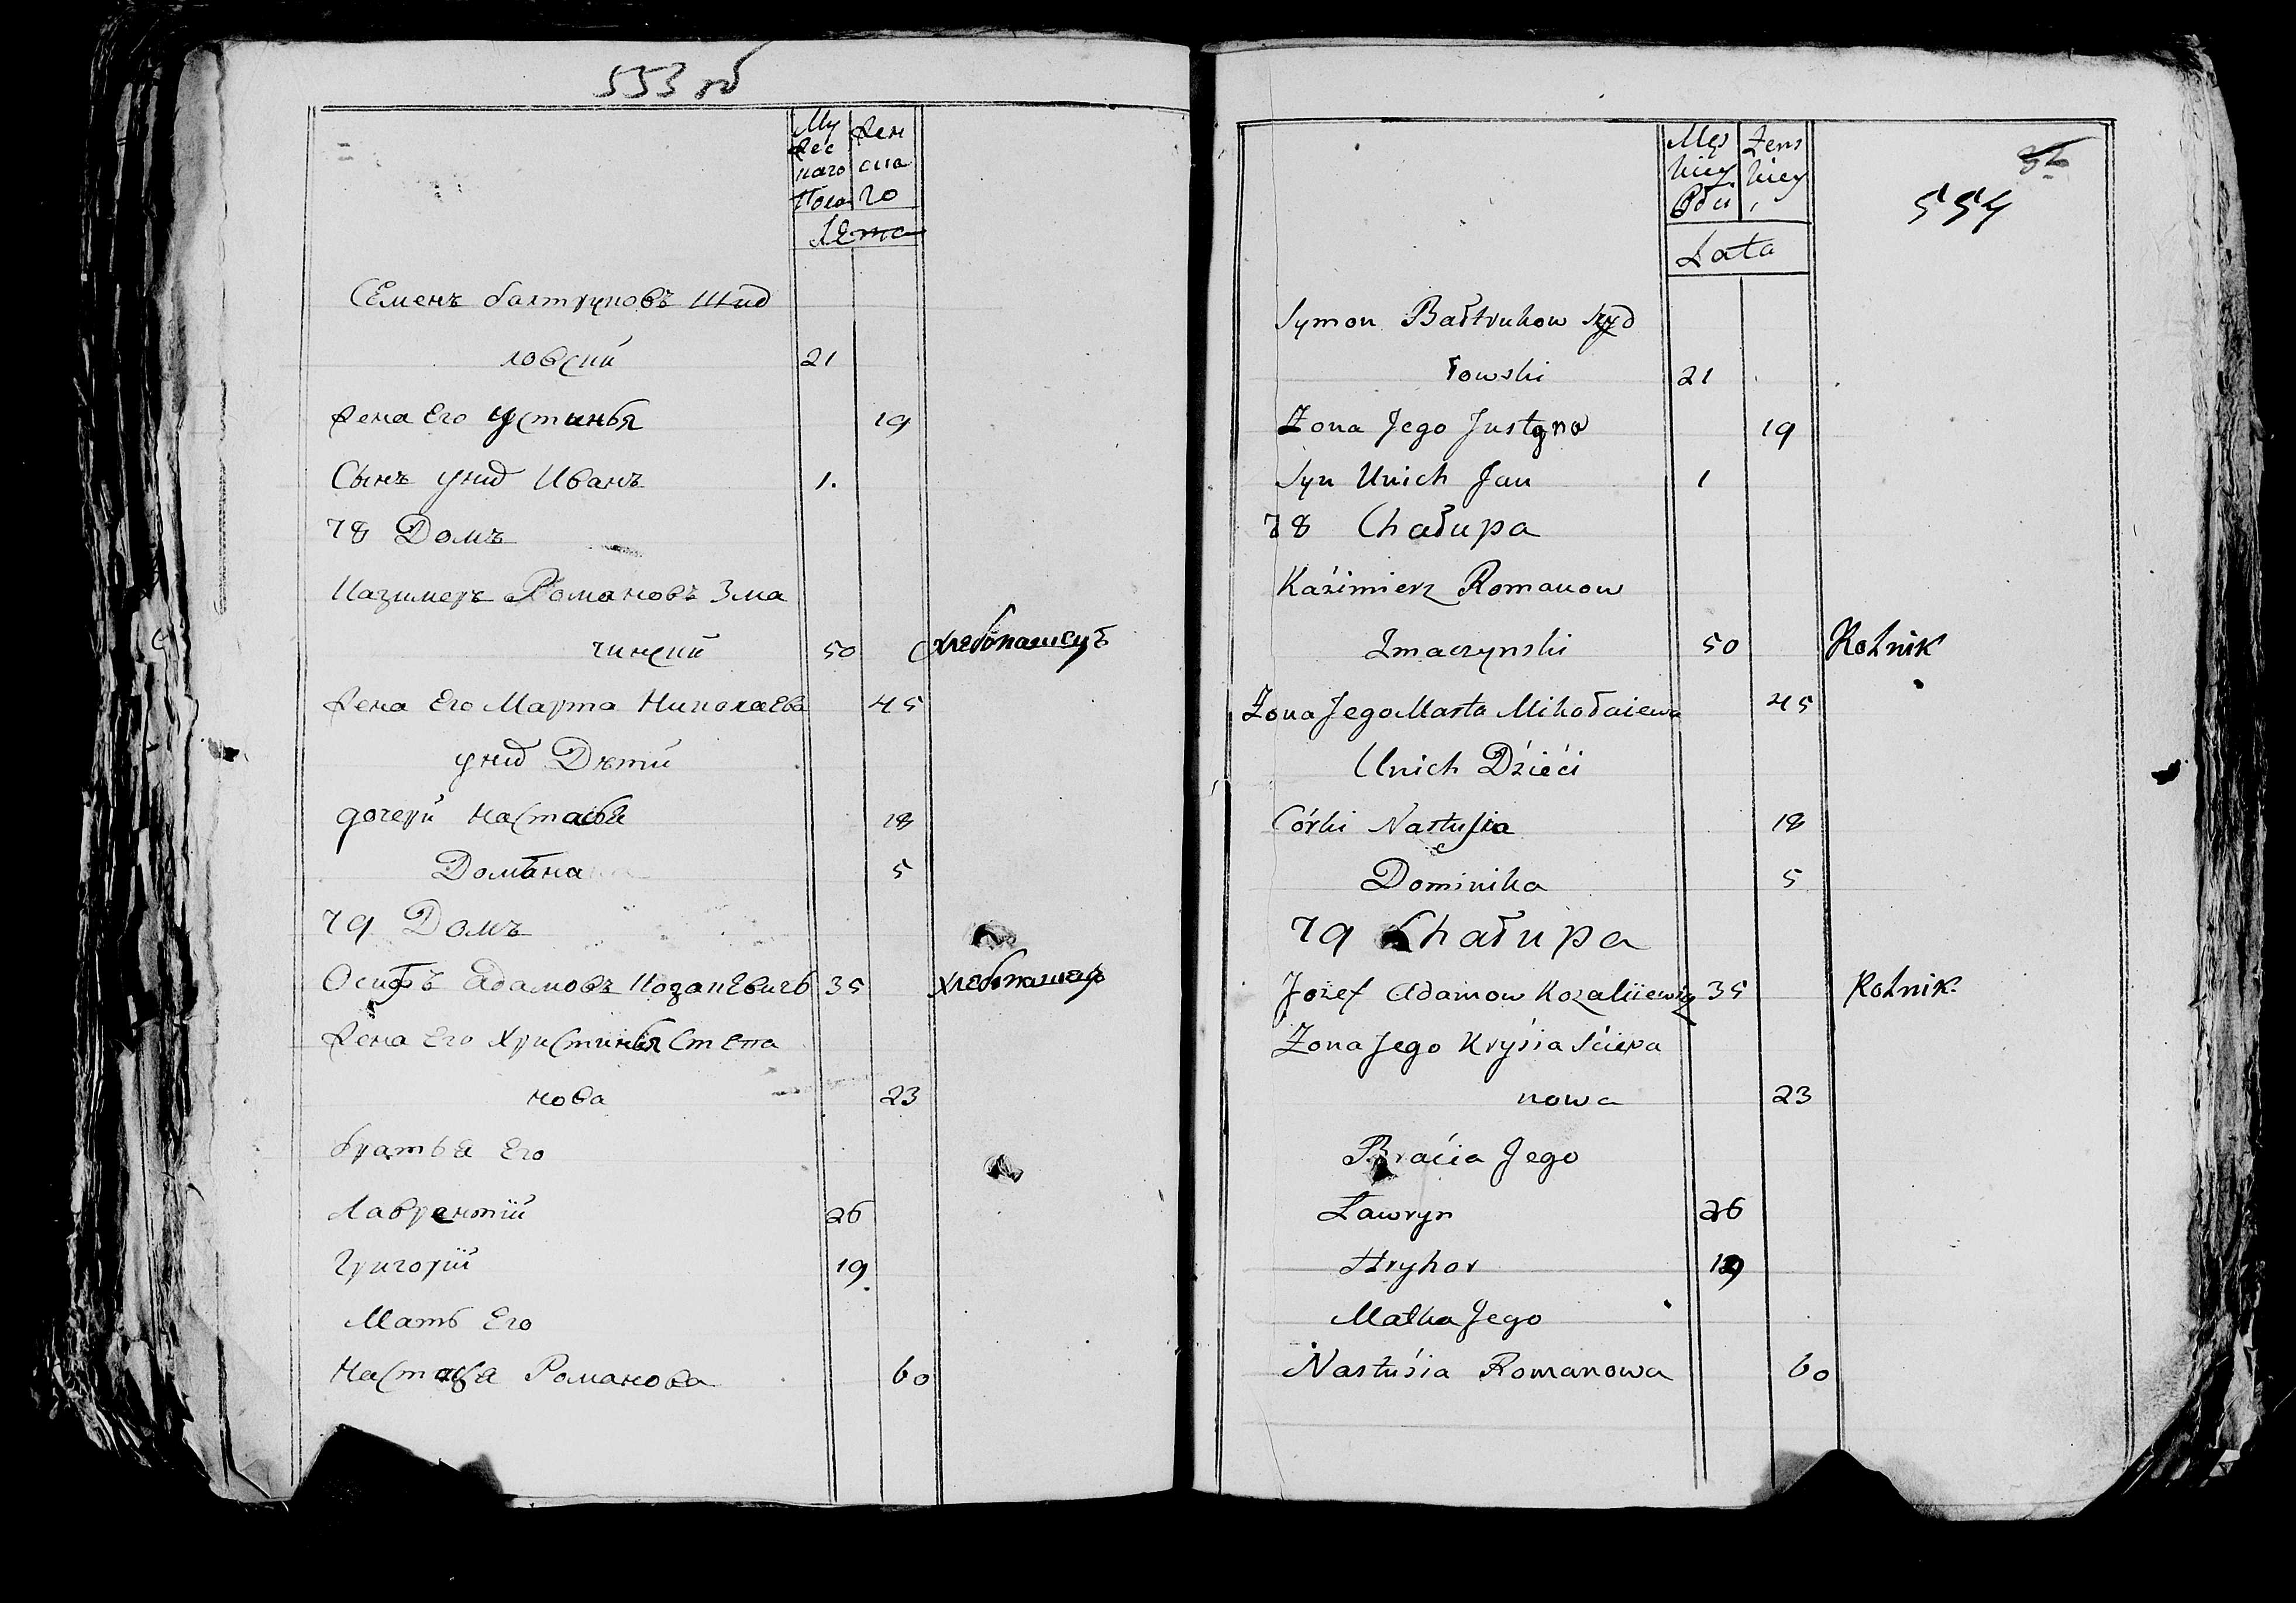 553 об
Му
жес
каго
Пола
Жен
ска
го
Лета
Семенъ балтруковъ Шид
ловский 21
Жена Его Устинья 19
Сынъ унид Иванъ 1.
78 Домъ
Казимеръ Романовъ Зма
чинский 50 хлебопашецъ
Жена Его Марта Николаева 45
унид Дети
дочери Настасья 18
Домна 5
79 Домъ
Осифъ Адамовъ Козакевичъ 35 хлебопашецъ
Жена Его Христинья Степа
нова 23
братья Его
Лаврентий 26
Григорий 19.
Мать Его
Настасья Романова 60
Męs
kiey
Płci
Zens
kiey
554
Lata
Symon Bałtrukow Szyd
łowski 21
Zona Jego Justyna 19
Syn Unich Jan 1
78 Chałupa
Kaźimierz Romanow
Zmaczynski 50 Rolnik
Zona Jego Marta Mikołaiewa 45
Unich Dzieći
Córki Nastusia 18
Dominika 5
79 Chałupa
Jozef Adamow Kozakiewicz 35 Rolnik.
Zona Jego Kryśia Sciepa
nowa 23
Braćia Jego
Ławryn 26
Hryhor 19
Matka Jego
Nastuśia Romanowa 60